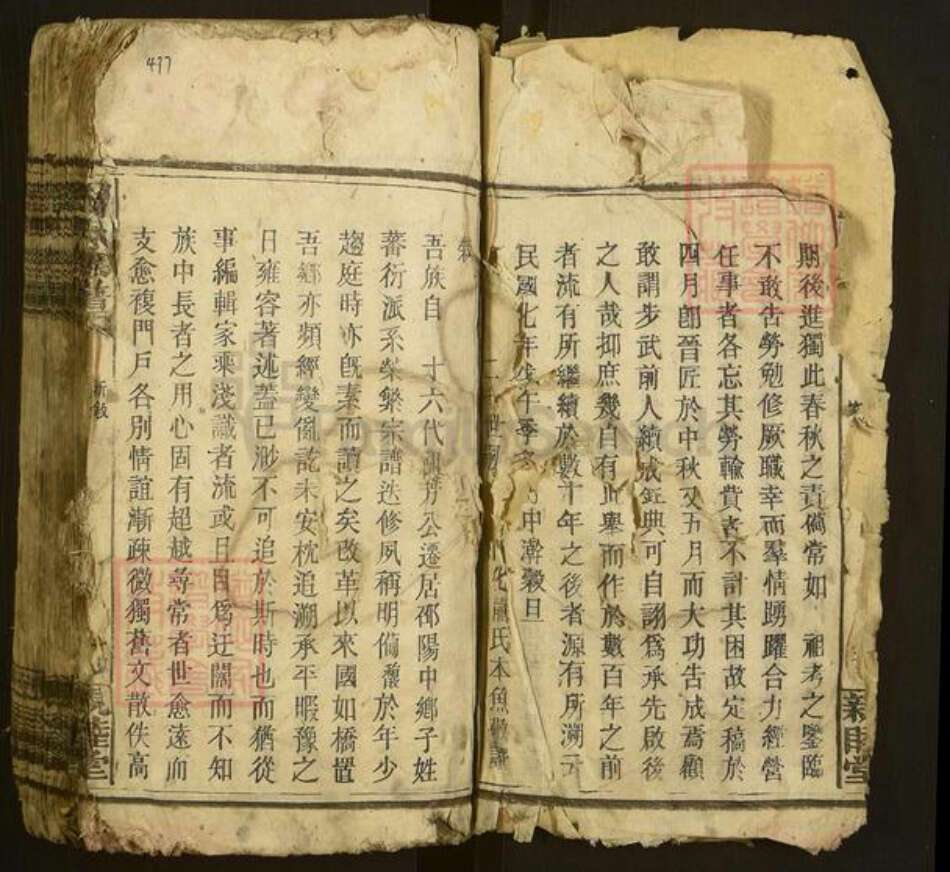 期後進獨此春秋之責備常如 祖考之鑒臨
不敢告勞勉修厥職幸而羣情踴躍合力經營
任事者各忘其勞輸費者不計其困故定稿於
四月卽晉匠於中秋又五月而大功告成焉顧
敢謂步武前人續成鉅典可自詡爲承先啟後
之人哉抑庶幾自有此舉而作於數百年之前
者流有所繼續於數十年之後者源有所溯云
民國化年戊午季冬 中澣穀旦
二 世 化 氏本魚 謹
吾族自 十六代 公遷居邵陽中鄉子姓
蕃衍派系榮繁宗譜迭修夙稱明備 於年少
趨庭時亦既素而讀之矣改革以來國如橋置
吾鄉亦頻經變亂訖未安枕追溯承平暇豫之
日雍容著述蓋已渺不可追於斯時也而猶從
事編輯家乘淺識者流或且目爲迂闊而不知
族中長者之用心固有超越尋常者世愈遠而
支愈複門戶各別情誼漸疎微獨舊文散佚高
新敍
睦堂
477